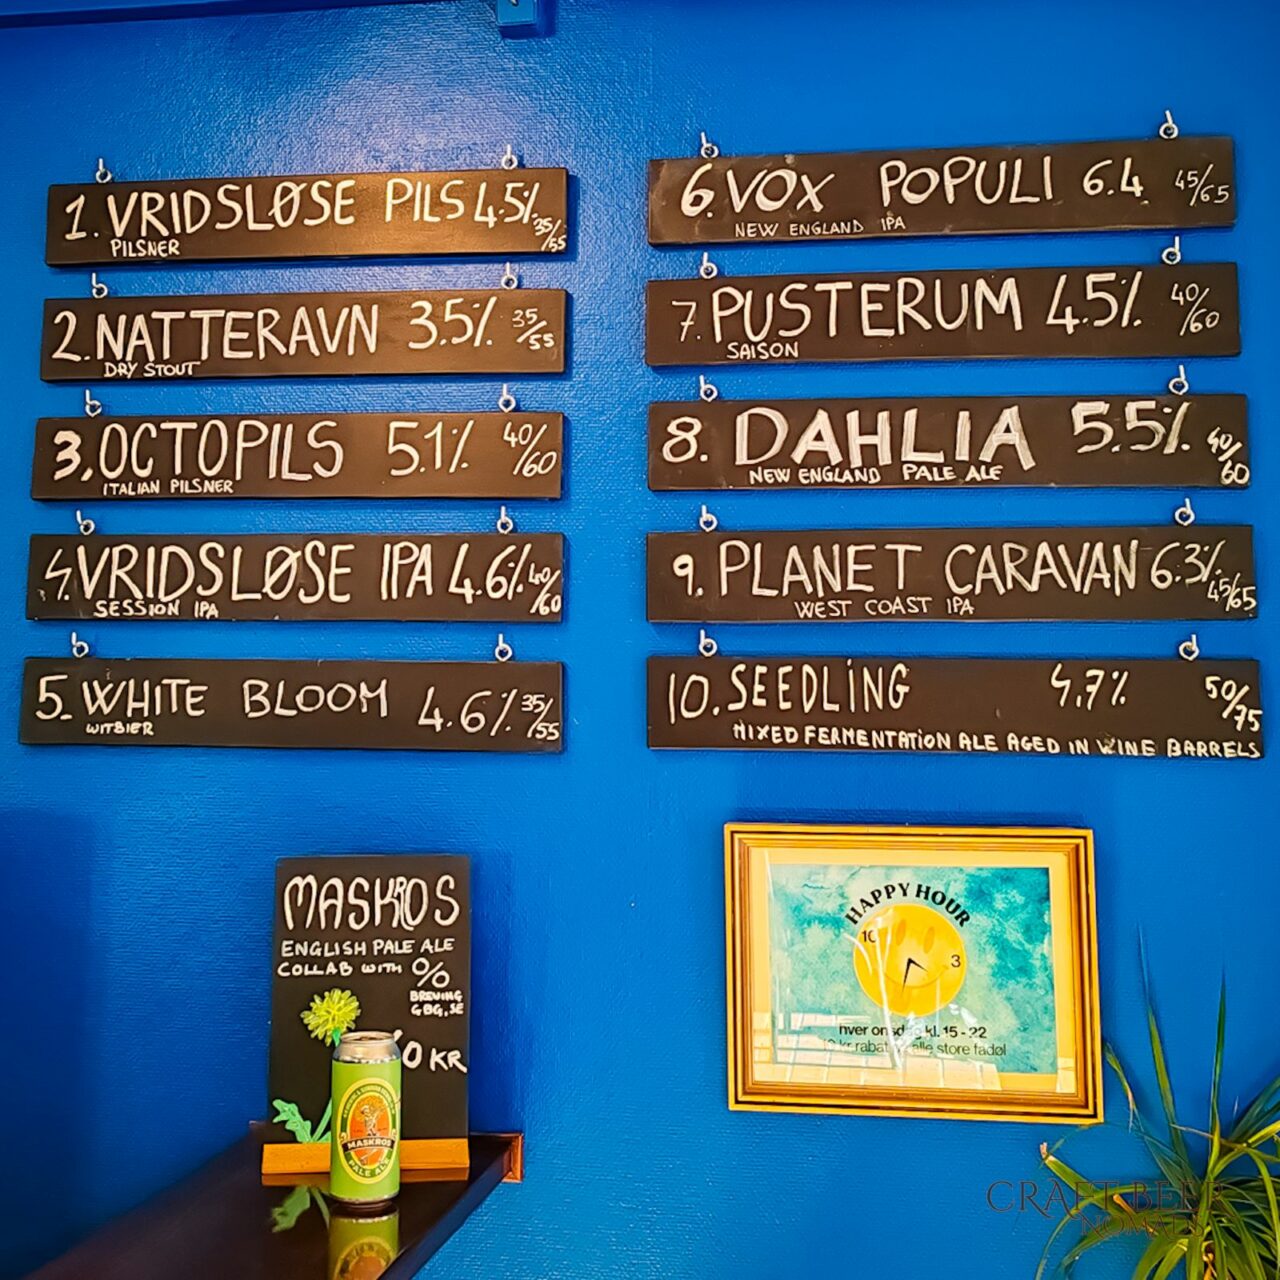 1. VRIDSLØSE PILS 4.5% 35/55
PILSNER
2. NATTERAVN 3.5% 35/55
DRY STOUT
3. OCTOPILS 5.1% 40/60
ITALIAN PILSNER
4. VRIDSLØSE IPA 4.6% 40/60
SESSION IPA
5. WHITE BLOOM 4.6% 35/55
WITBIER
6. VOX POPULI 6.4 45/65
NEW ENGLAND IPA
7. PUSTERUM 4.5% 40/60
SAISON
8. DAHLIA 5.5% 40/60
NEW ENGLAND PALE ALE
9. PLANET CARAVAN 6.3% 45/65
WEST COAST IPA
10. SEEDLING 4.7% 50/75
MIXED FERMENTATION ALE AGED IN WINE BARRELS
MASKROS
ENGLISH PALE ALE
COLLAB WITH O/O
BREWING
GBG, SE
KR
MASKROS
PALE ALE
HAPPY HOUR
10
3
hver onsdag kl. 15 - 22
kr rabat alle store fadøl
CRAFT BEER
NOMADS